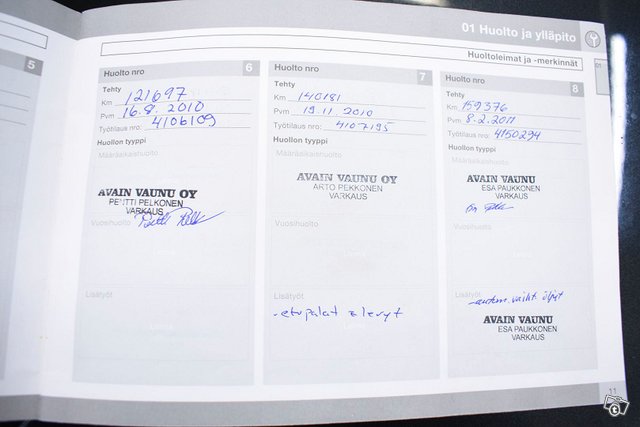 01 Huolto ja ylläpito
Huoltoleimat ja -merkinnät
5
Huolto nro 6
Tehty
Km 121697
Pvm 16.8. 2010
Työtilaus nro: 4106109
Huollon tyyppi
Määräaikaishuolto
AVAIN VAUNU OY
PENTTI PELKONEN
VARKAUS
Vuosihuolto
Lisätyöt
Huolto nro 7
Tehty
Km 140181
Pvm 19.11. 2010
Työtilaus nro: 4107195
Huollon tyyppi
Määräaikaishuolto
AVAIN VAUNU OY
ARTO PEKKONEN
VARKAUS
Vuosihuolto
Lisätyöt
-etupalat & levyt
Huolto nro 8
Tehty
Km 159376
Pvm 8.2.2011
Työtilaus nro: 4150294
Huollon tyyppi
Määräaikaishuolto
AVAIN VAUNU
ESA PAUKKONEN
VARKAUS
Vuosihuolto
Lisätyöt
-autom. vaiht. öljyt
AVAIN VAUNU
ESA PAUKKONEN
VARKAUS
11
01